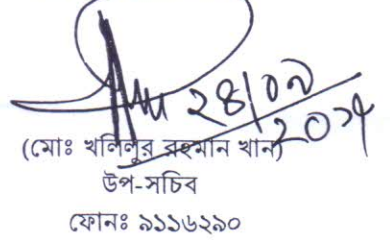 ২৪|০৯
২০১৭
(মোঃ খলিলুর রহমান খান)
উপ-সচিব
ফোনঃ ৯১১৬২৯০